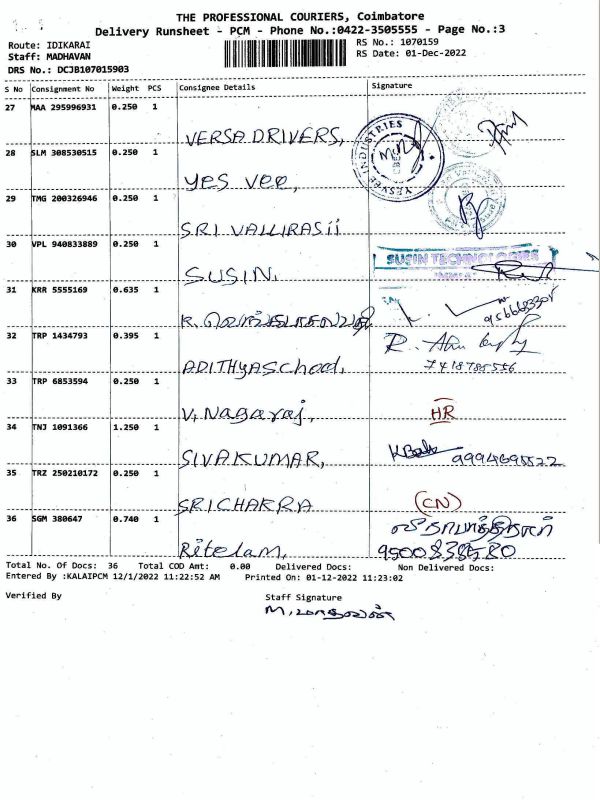 THE PROFESSIONAL COURIERS, Coimbatore
Delivery Runsheet - PCM - Phone No.:0422-3505555 - Page No.:3
Route: IDIKARAI
RS No.: 1070159
Staff: MADHAVAN
RS Date: 01-Dec-2022
DRS No.: DCJB107015903
S No Consignment No Weight PCS Consignee Details Signature
27 MAA 295996931 0.250 1
VERSA DRIVERS,
YESVEE INDUSTRIES
28 SLM 308530515 0.250 1
Yes Vee,
29 TMG 200326946 0.250 1
SRI VALLIRASII
30 VPL 940833889 0.250 1
SUSIN TECHNOLOGIES
SUSIN.
31 KRR 5555169 0.635 1
K.
32 TRP 1434793 0.395 1
ADITHYASchool,
7418785556
33 TRP 6853594 0.250 1
V, Nagaraj,
HR
34 TNJ 1091366 1.250 1
SIVAKUMAR,
9994695522
35 TRZ 250210172 0.250 1
SRICHAKRA
(CN)
36 SGM 380647 0.740 1
Ritelam,
9500838580
Total No. Of Docs: 36 Total COD Amt: 0.00 Delivered Docs: Non Delivered Docs:
Entered By :KALAIPCM 12/1/2022 11:22:52 AM Printed On: 01-12-2022 11:23:02
Verified By
Staff Signature
M. மாதவன்